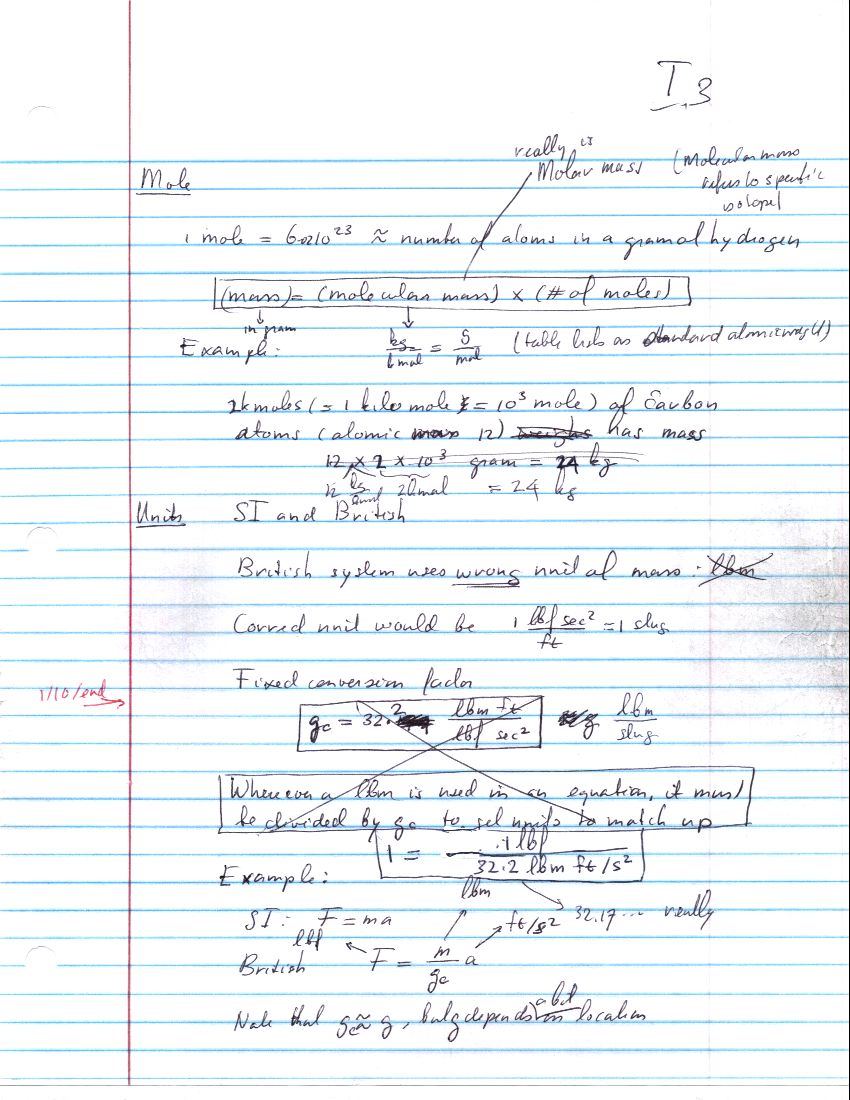 I.3
really is
Molar mass (Molecular mass
Mole
refers to specific
isotope)
1 mole = 6.02 10^23 ≈ number of atoms in a gram of hydrogen
(mass) = (molecular mass) × (# of moles)
in gram
Example: kg/kmol = g/mol (table lists as standard atomic weight)
2kmoles (= 1 kilo mole = 10^3 mole) of Carbon
atoms (atomic mass 12) weighs has mass
12 × 2 × 10^3 gram = 24 kg
12 kg/kmol 2kmol = 24 kg
Units SI and British
British system uses wrong unit of mass: lbm
Correct unit would be 1 lbf sec²/ft = 1 slug
Fixed conversion factor
1/10/end
gc = 32.2 lbm ft/lbf sec² lbm/slug
Whenever a lbm is used in an equation, it must
be divided by gc to get units to match up
1 = 1 lbf/32.2 lbm ft/s²
Example:
lbm
SI: F = ma ft/s² 32.17... really
lbf
British F = m/gc a
a bit
Note that gc ≈ g, but g depends on location